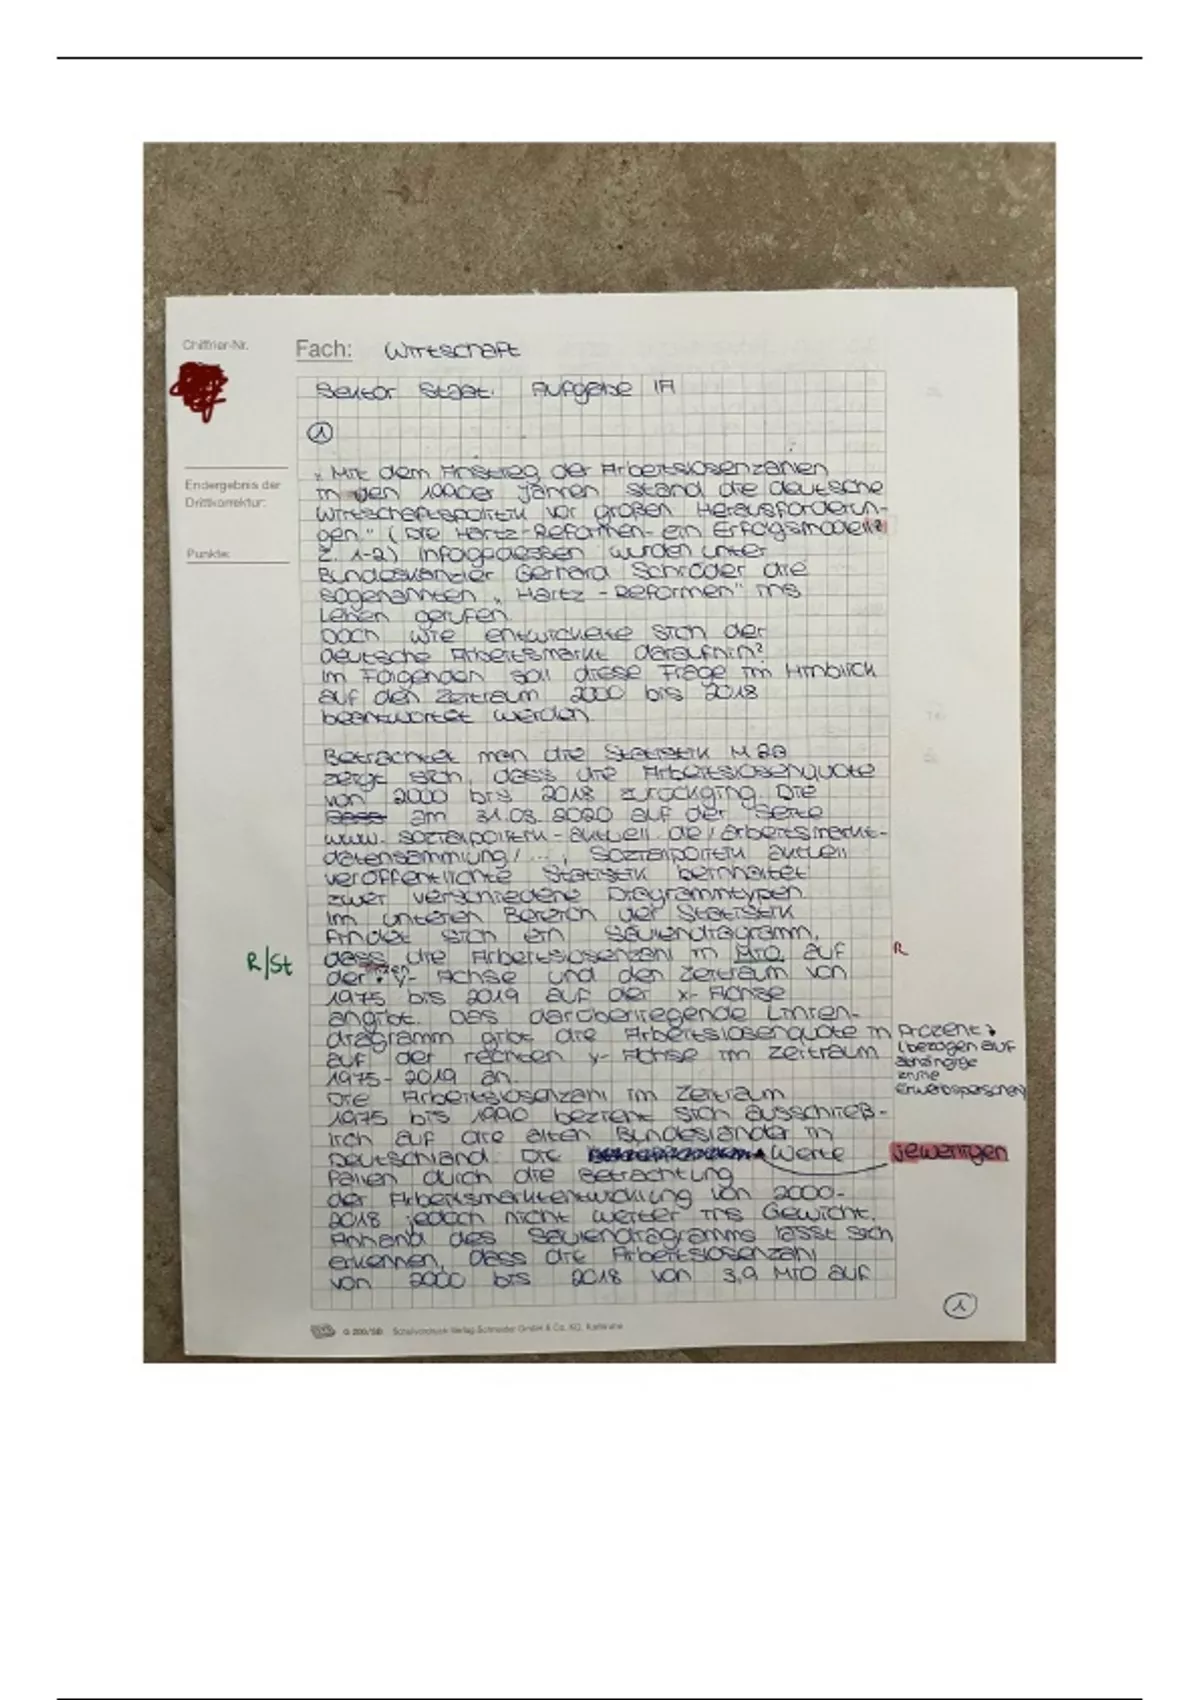 Chiffrier-Nr.
Fach: Wirtschaft
Sektor Staat. Aufgabe 1A
①
„Mit dem Anstieg der Arbeitslosenzahlen
in den 1990er Jahren stand die deutsche
Wirtschaftspolitik vor großen Herausforderun-
Endergebnis der
Drittkorrektur:
gen." (Die Hartz-Reformen - ein Erfolgsmodell?
Z. 1-2) Infolgedessen wurden unter
Punkte:
Bundeskanzler Gerhard Schröder die
sogenannten „Hartz-Reformen" ins
Leben gerufen.
Doch wie entwickelte sich der
deutsche Arbeitsmarkt daraufhin?
Im Folgenden soll diese Frage im Hinblick
auf den Zeitraum 2000 bis 2018
beantwortet werden.
Betrachtet man die Statistik M
zeigt sich, dass die Arbeitslosenquote
von 2000 bis 2018 zurückging. Die
am 31.03.2020 auf der Seite
www.sozialpolitik-aktuell.de/arbeitsmarkt-
datensammlung/..., Sozialpolitik aktuell
veröffentlichte Statistik beinhaltet
zwei verschiedene Diagrammtypen.
Im unteren Bereich der Statistik
findet sich ein Säulendiagramm,
R/St
dass die Arbeitslosenzahl in Mio. auf R
der y-Achse und den Zeitraum von
1975 bis 2019 auf der x-Achse
angibt. Das darüberliegende Linien-
diagramm gibt die Arbeitslosenquote in Prozent
(bezogen auf
abhängige
zivile
Erwerbspersonen)
auf der rechten y-Achse im Zeitraum
1975-2019 an.
Die Arbeitslosenzahl im Zeitraum
1975 bis 1990 bezieht sich ausschließ-
lich auf die alten Bundesländer in
Deutschland. Die Werte jeweiligen
fallen durch die Betrachtung
der Arbeitsmarktentwicklung von 2000-
2018 jedoch nicht weiter ins Gewicht.
Anhand des Säulendiagramms lässt sich
erkennen, dass die Arbeitslosenzahl
von 2000 bis 2018 von 3,9 Mio auf
①
G 200/SB Schulvordruck-Verlag Schneider GmbH & Co. KG, Karlsruhe